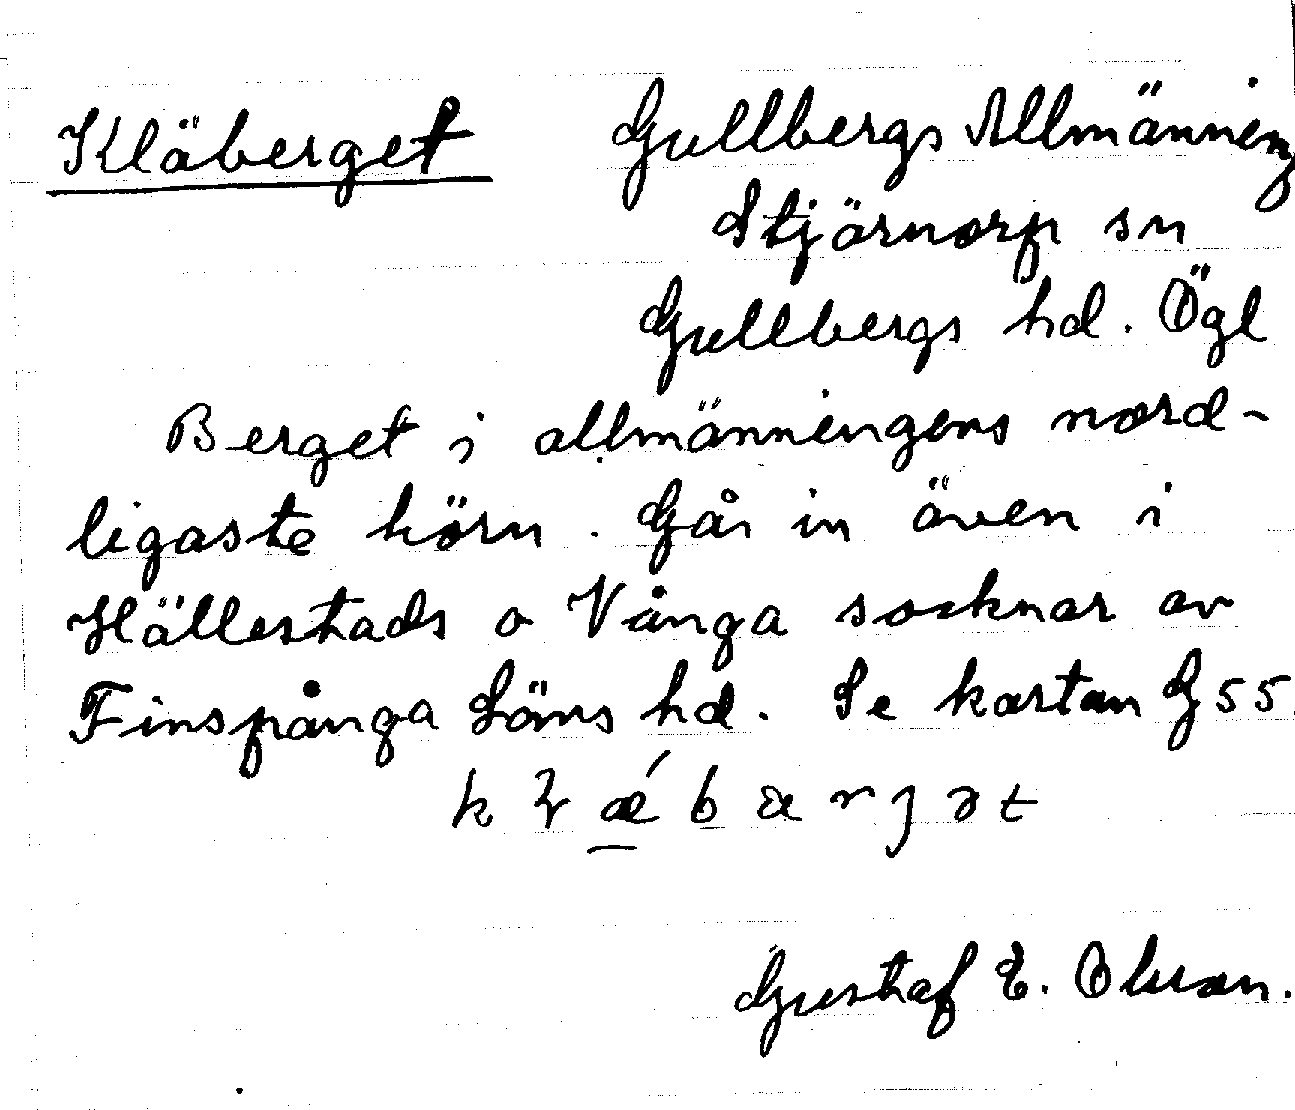 Kläberget Gullbergs Allmänning
Stjärnorp sn
Gullbergs hd. Ögl
Berget i allmänningens nord-
ligaste hörn. Går in även i
Hällestads o Vånga socknar av
Finspånga Läns hd. Se kartan G 55
Gustaf E. Olsson.